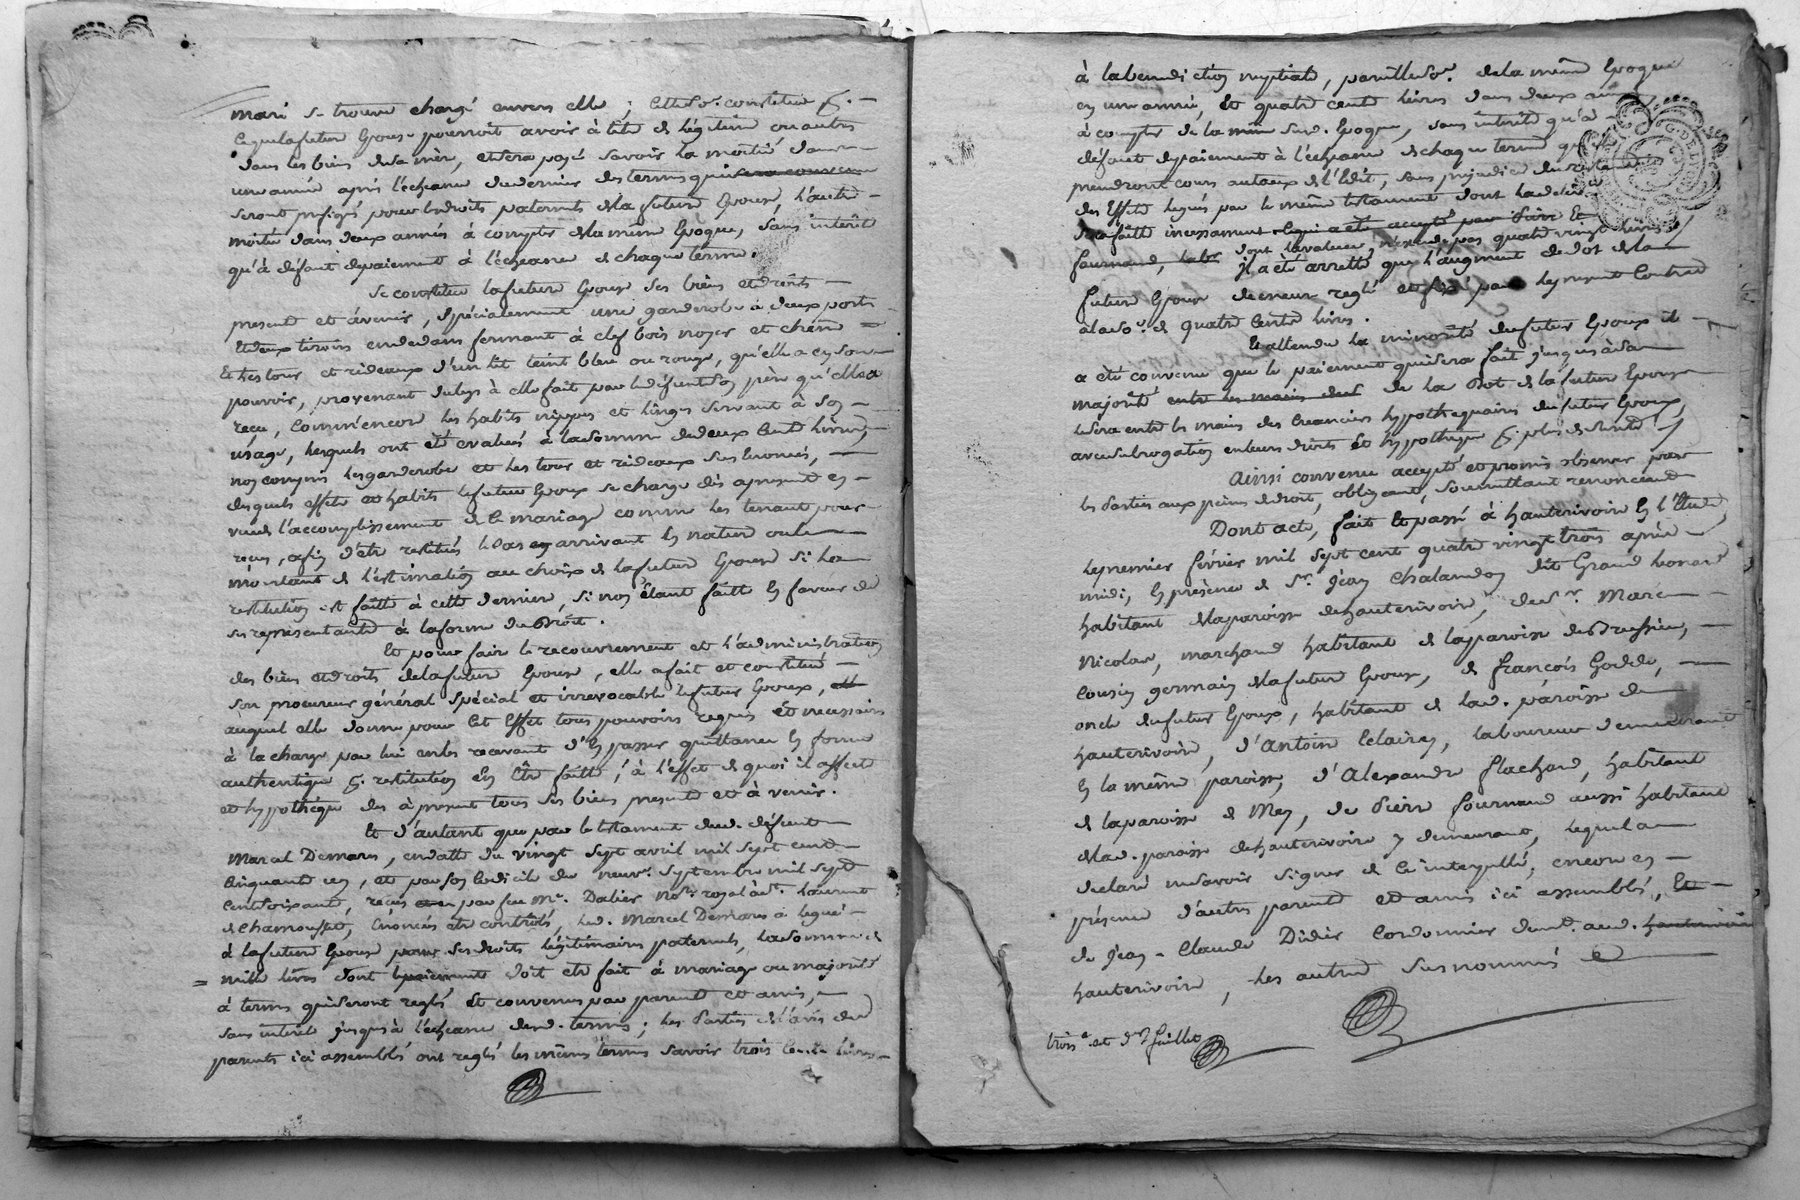 mari se trouve chargé envers elle ; elle se constitue
ce que la future Epouse pourroit avoir à titre de légitime ou autres
dans les biens de sa mère, et sera payé savoir la moitié dans
une année après l'echeance du dernier des termes qui sera convenu
seront prefigés pour les droits paternels de la future Epouse, l'autre
moitié dans deux années à compter de la même Epoque, sans interêt
qu'à défaut de paiement à l'echeance de chaque terme.
Se constitue la future Epouse ses biens et droits
present et avenir, spécialement une garderobe à deux portes
et deux tiroirs en dedans fermant à clef bois noyer et chêne
Et les tour et rideaux d'un lit teint bleu ou rouge, qu'elle a en son
pouvoir, provenant du legs à elle fait par le défunt son père qu'elle a
reçu, comm'encor les habits nippes et linges servant à son
usage, lesquels ont été evalués à la somme de deux cent livres,
non compris les garderobe et les tour et rideaux sus enoncés,
desquels effets et habits le futur Epoux se charge dès apresent en
vue de l'accomplissement de le mariage comme les tenant pour
reçus, afin d'être restitués le cas en arrivant en nature ou le
montant de l'estimation au choix de la future Epouse si la
restitution est faitte à cette derniere, si non étant faitte en faveur de
ses representants à la forme du Droit.
Et pour faire le recouvrement et l'administration
des biens et droits de la future Epouse, elle a fait et constitué
son procureur général spécial et irrevocable le futur Epoux,
auquel elle donne pour cet effet tous pouvoirs requis et necessaires
à la charge par lui en les recevant d'en passer quittance en forme
authentique restitution en être faitte, à l'effet de quoi il affecte
et hypothéque dès à présent tous ses biens present et à venir.
Et d'autant que par le testament dud. défunt
Marcel Demares, en datte du vingt sept avril mil sept cent
cinquante six, et par son codicile du neuf septembre mil sept
cent soixante, reçus par feu Me. Dalier nore. royal
de Chamousset, énoncés et contrôlés, led. Marcel Demares a legué
à la future Epouse pour ses droits légitimaires paternels, la somme de
mille livres dont le paiement doit être fait à mariage ou majorité
à termes qui seront reglés et convenus par parents et amis,
sans interêt jusqu'à l'echeance desd. termes ; les Parties de l'avis des
parents ici assemblés ont reglé les mêmes termes savoir trois cents livres
à la benediction nuptiale, pareille so. de la même Epoque
en une année, et quatre cent livres dans deux années
à compter de la même susd. Epoque, sans interêt qu'à
défaut de paiement à l'echeance de chaque terme
prendront cours au taux de l'Edit, sans prejudice
des effets legués par le même testament dont la
sera faitte incessament lequi a été accepté par Pierre Et
Fournand, dont la valeur n'excede pas quatre vingt livres
il a été arretté que l'augment de dot de la
future Epouse demeure reglé et fixé par le present Contrat
à la so. de quatre Cents livres.
Et attendu la minorité du futur Epoux il
a été convenu que le paiement qui sera fait jusques à sa
majorité entre les mains de la Dot de la future Epouse
le sera entre les mains des Creanciers hypothequaires du futur Epoux,
avec subrogation en leurs droits et hypotheque
Ainsi convenu accepté et promis observer par
les Parties aux peines de droit, obligeant, soumettant renonçant
Dont acte, fait et passé à hauterivoire en l'Etude,
le premier février mil sept cent quatre vingt trois après
midi, en présence de Sr. Jean Chalandon dit Grand
habitant de la paroisse de hauterivoire, de Sr. Marc
Nicolas, marchand habitant de la paroisse de Brussieu,
cousin germain de la future Epouse, de françois Godde,
oncle du futur Epoux, habitant de lad. paroisse de
hauterivoire, d'Antoine Clairet, laboureur demeurant
en la même paroisse, d'Alexandre flachard, habitant
de la paroisse de Mey, de Pierre Fournand aussi habitant
de lad. paroisse de hauterivoire y demeurant, lequel a
declaré ne savoir signer de ce interpellé, encore en
présence d'autres parents et amis ici assemblés, Et
de Jean-Claude Didier Cordonnier demt. aud. hauterivoire
hauterivoire, les autres susnommés
trois.e et d.er feuillet